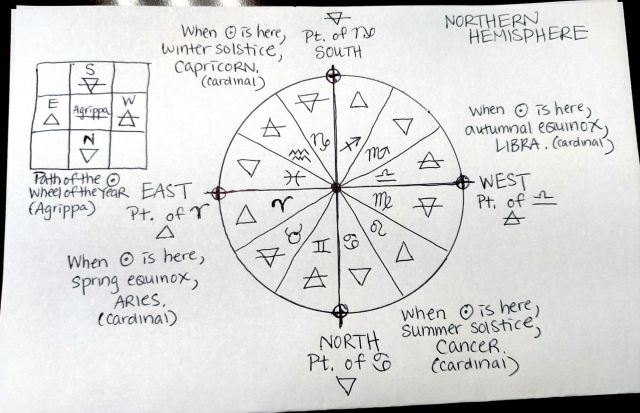 NORTHERN
HEMISPHERE
When ☉ is here,
winter solstice,
CAPRICORN.
(cardinal)
🜃
Pt. of ♑
SOUTH
S
🜃
E
🜂
Agrippa
W
🜁
N
🜄
Path of the ☉
Wheel of the Year
(Agrippa)
When ☉ is here,
autumnal equinox,
LIBRA. (cardinal)
EAST
Pt. of ♈
🜂
WEST
Pt. of ♎
🜁
🜃 🜂
🜁 🜄
♑ ♐
🜄 ♒ ♏ 🜁
♓ ♎
🜂 ♈ ♍ 🜃
♉ ♌
🜃 ♊ ♋ 🜂
🜁 🜄
When ☉ is here,
spring equinox,
ARIES.
(cardinal)
When ☉ is here,
summer solstice,
CANCER.
(cardinal)
NORTH
Pt. of ♋
🜄